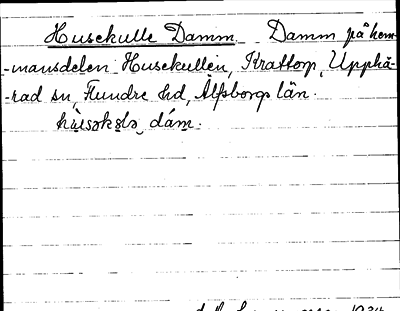 Husekulle Damm. Damm på hem-
-mansdelen Husekullen, Krattorp, Upphä-
-rad sn, Flundre hd, Älfsborgs län.
dám.
1934